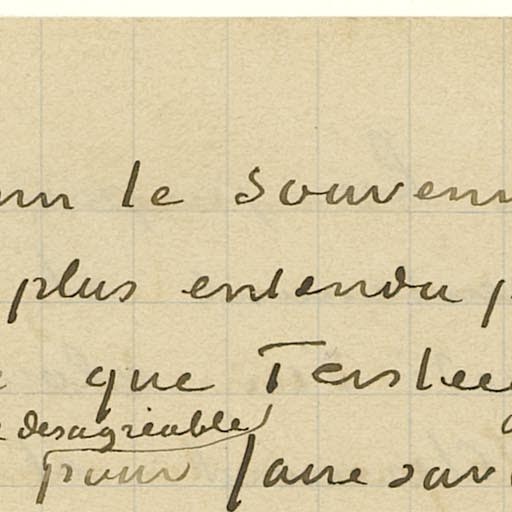 le souven
plus entendu p
que Terstee
desagréable
pour faire sav